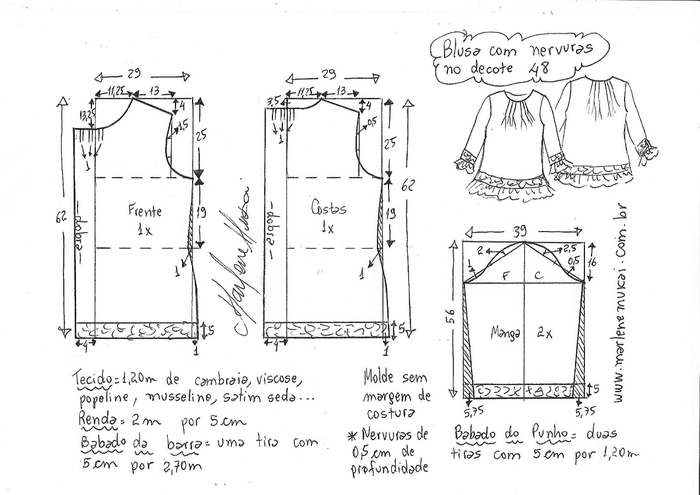 Blusa com nervuras
no decote 48
29
11,25
13
13,25
4
1,5
25
1
62
Frente
1x
-dobra-
19
1
5
4
1
Marlene Mukai
29
3,5
11,25
13
4
0,5
25
1
62
Costas
1x
-dobra-
19
1
5
4
1
39
2
2,5
1
0,5
16
F
C
56
Manga
2x
5
5,75
5,75
www.marlenemukai.com.br
Tecido=1,20m de cambraia, viscose,
popeline, musseline, satim seda...
Renda= 2m por 5cm
Babado da barra= uma tira com
5cm por 2,70m
Molde sem
margem de
costura
* Nervuras de
0,5cm de
profundidade
Babado do Punho= duas
tiras com 5cm por 1,20m